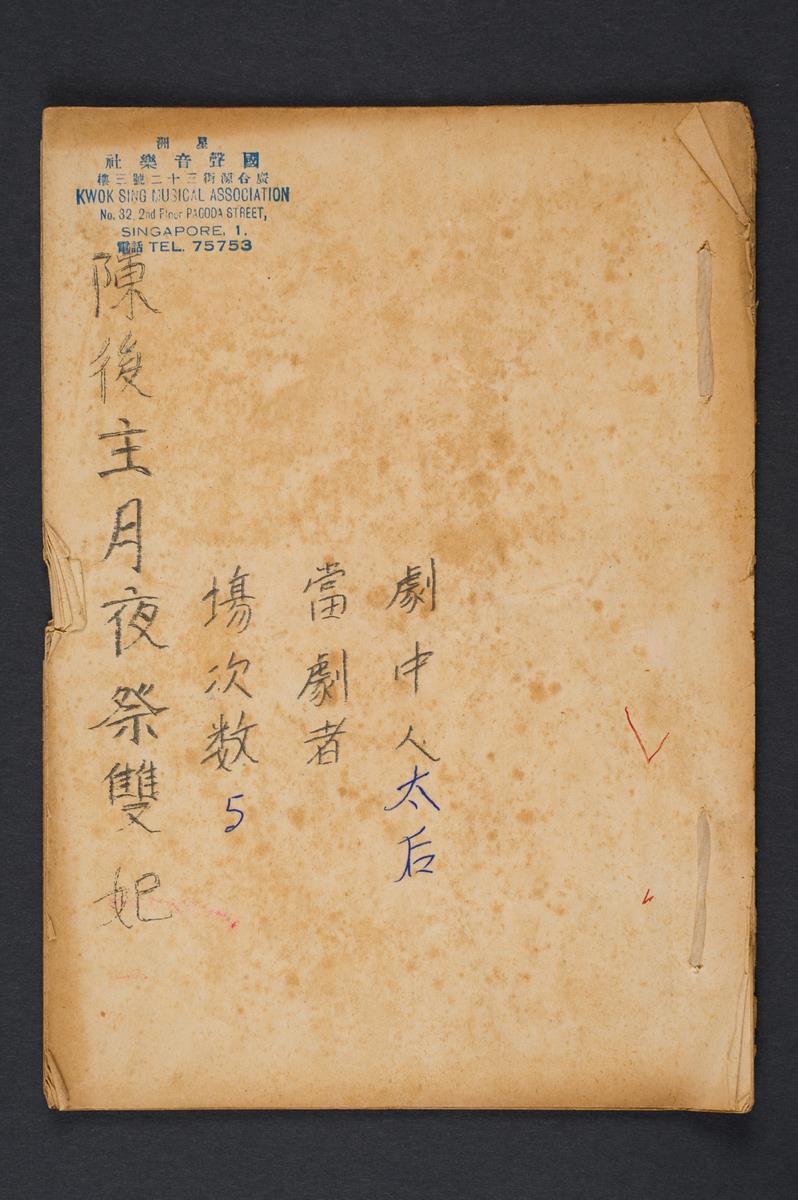 星洲
國聲音樂社
廣合源街三十二號三樓
KWOK SING MUSICAL ASSOCIATION
No. 32, 2nd Floor PAGODA STREET,
SINGAPORE, 1.
電話 TEL. 75753
劇中人太后
當劇者
場次数5
陳後主月夜祭雙妃